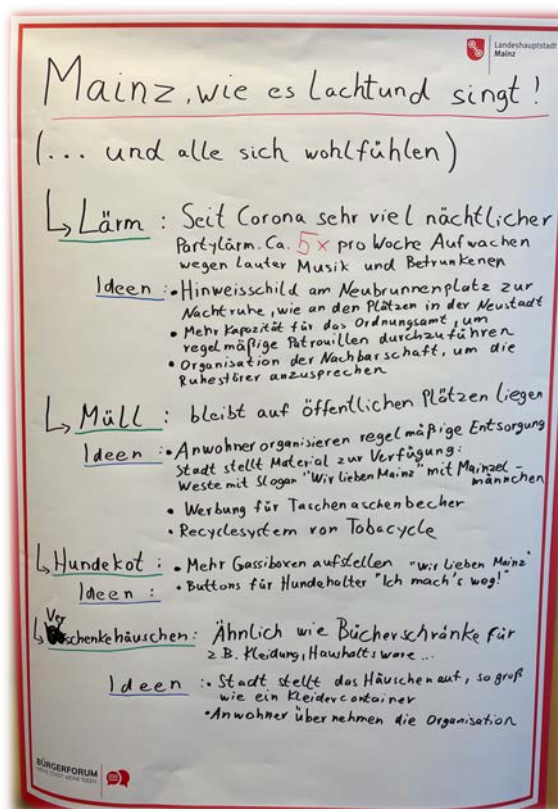 Landeshauptstadt
Mainz
Mainz, wie es lacht und singt!
(... und alle sich wohlfühlen)
↳ Lärm : Seit Corona sehr viel nächtlicher
Partylärm. Ca. 5x pro Woche Aufwachen
wegen lauter Musik und Betrunkenen
Ideen : • Hinweisschild am Neubrunnenplatz zur
Nachtruhe, wie an den Plätzen in der Neustadt
• Mehr Kapazität für das Ordnungsamt, um
regelmäßige Patrouillen durchzuführen
• Organisation der Nachbarschaft, um die
Ruhestörer anzusprechen
↳ Müll : bleibt auf öffentlichen Plätzen liegen
Ideen : • Anwohner organisieren regelmäßige Entsorgung
Stadt stellt Material zur Verfügung:
Weste mit Slogan "Wir lieben Mainz" mit Mainzel-
männchen
• Werbung für Taschenaschenbecher
• Recyclesystem von Tobacycle
↳ Hundekot : • Mehr Gassiboxen aufstellen "Wir lieben Mainz"
Ideen : • Buttons für Hundehalter "Ich mach's weg!"
↳ Verschenkehäuschen : Ähnlich wie Bücherschränke für
z.B. Kleidung, Haushaltsware ...
Ideen : • Stadt stellt das Häuschen auf, so groß
wie ein Kleidercontainer
• Anwohner übernehmen die Organisation
BÜRGERFORUM
MEINE STADT. MEINE IDEEN.